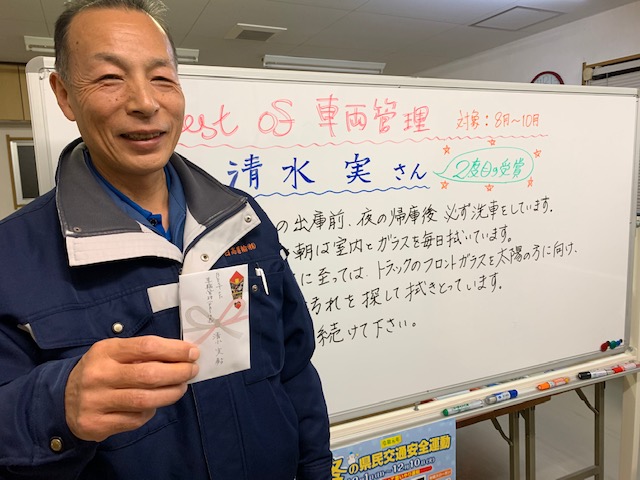 est of 車両管理 対象：8月〜10月
清水 実 さん 2度目の受賞
の出庫前、夜の帰庫後 必ず洗車をしています。
朝は室内とガラスを毎日拭いています。
に至っては、トラックのフロントガラスを太陽の方に向け、
汚れを探して拭きとっています。
続けて下さい。
冬の県民交通安全運動
12月10日